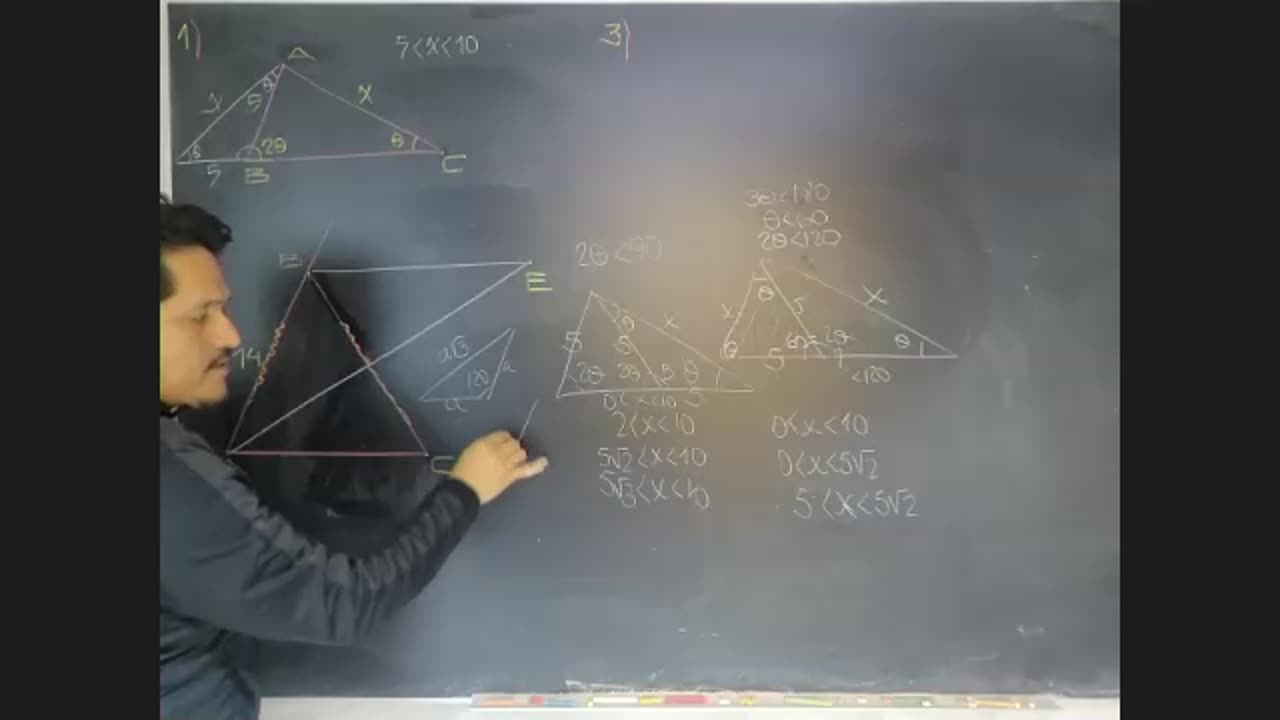 1)
5<x<10
A
x
5
θ
x
θ
2θ
θ
5
B
C
3)
B
E
14
C
a√3
120
a
a
2θ<90
5
θ
5
x
2θ
2θ
θ
θ
5
0<x<10
2<x<10
5√2<x<10
5√3<x<10
3θ<180
θ<60
2θ<120
x
θ
5
x
θ
5
2θ
θ
<120
0<x<10
0<x<5√2
5<x<5√2